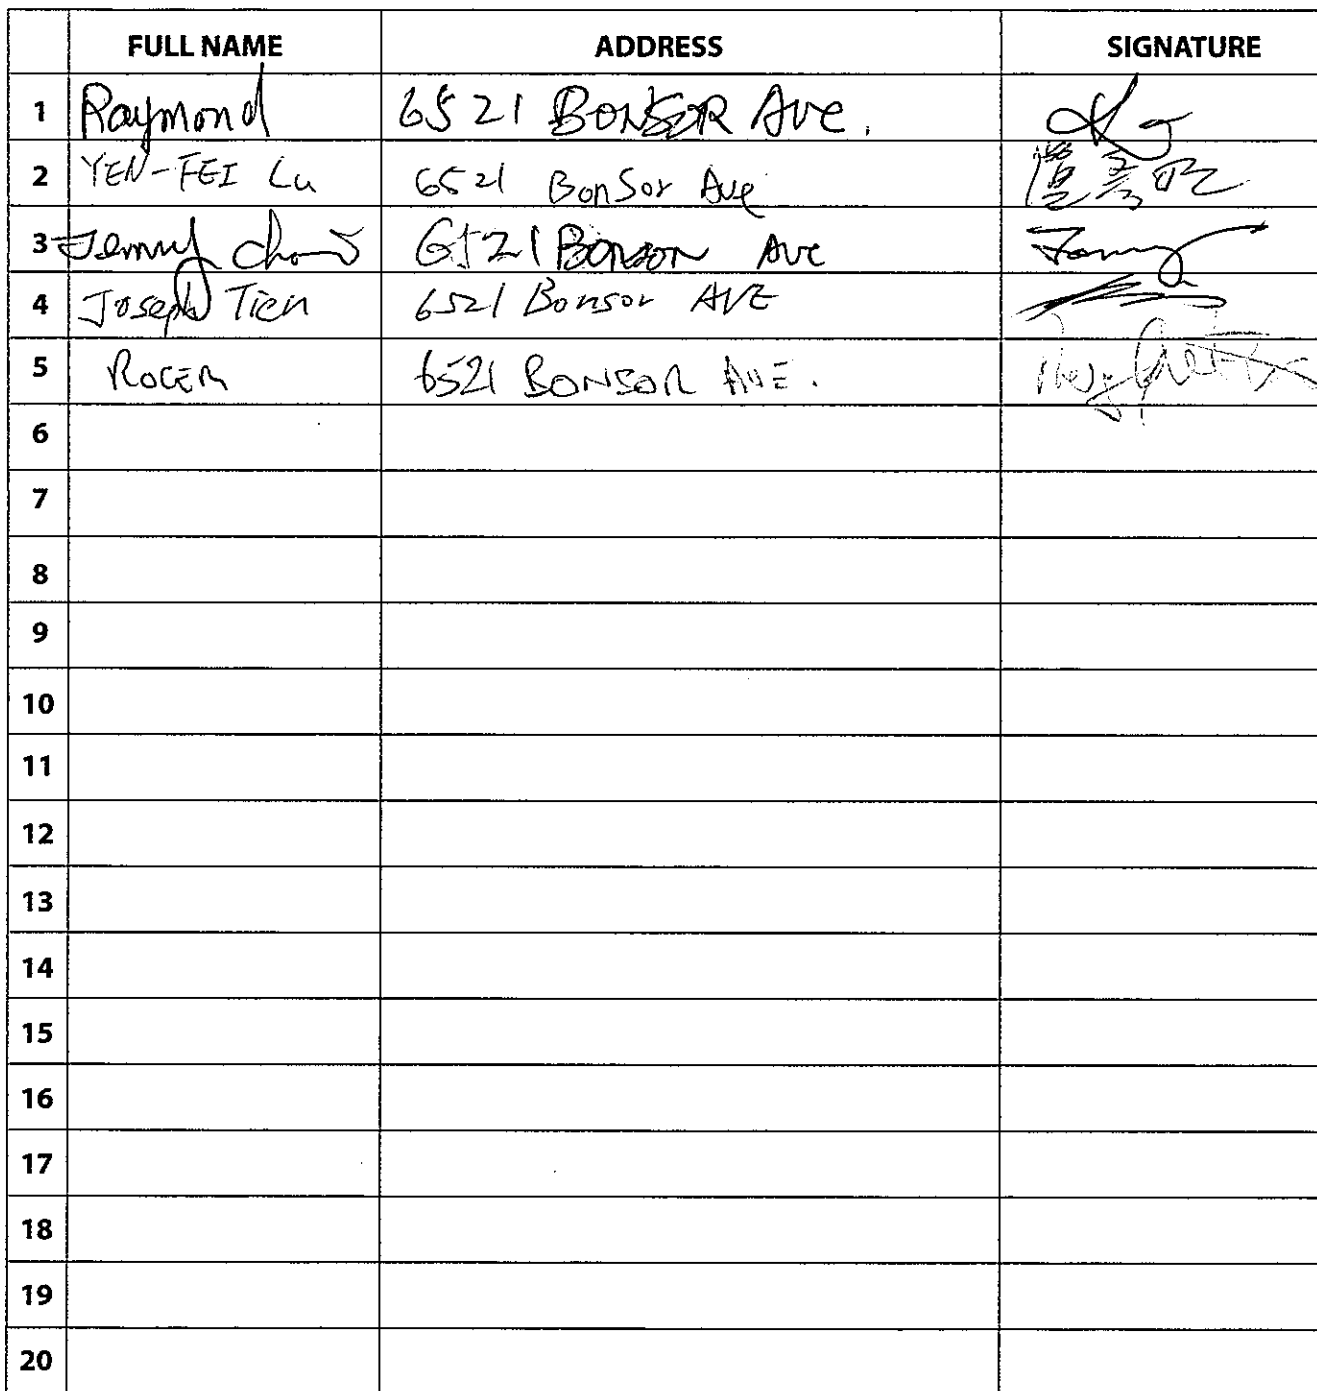 FULL NAME ADDRESS SIGNATURE
1 Raymond 6521 BONSOR Ave.
2 YEN-FEI Lu 6521 BonSor Ave
3 6521 Bonson Ave
4 Joseph Tien 6521 Bonsor AVE
5 ROGER 6521 BONSOR AVE.
6
7
8
9
10
11
12
13
14
15
16
17
18
19
20